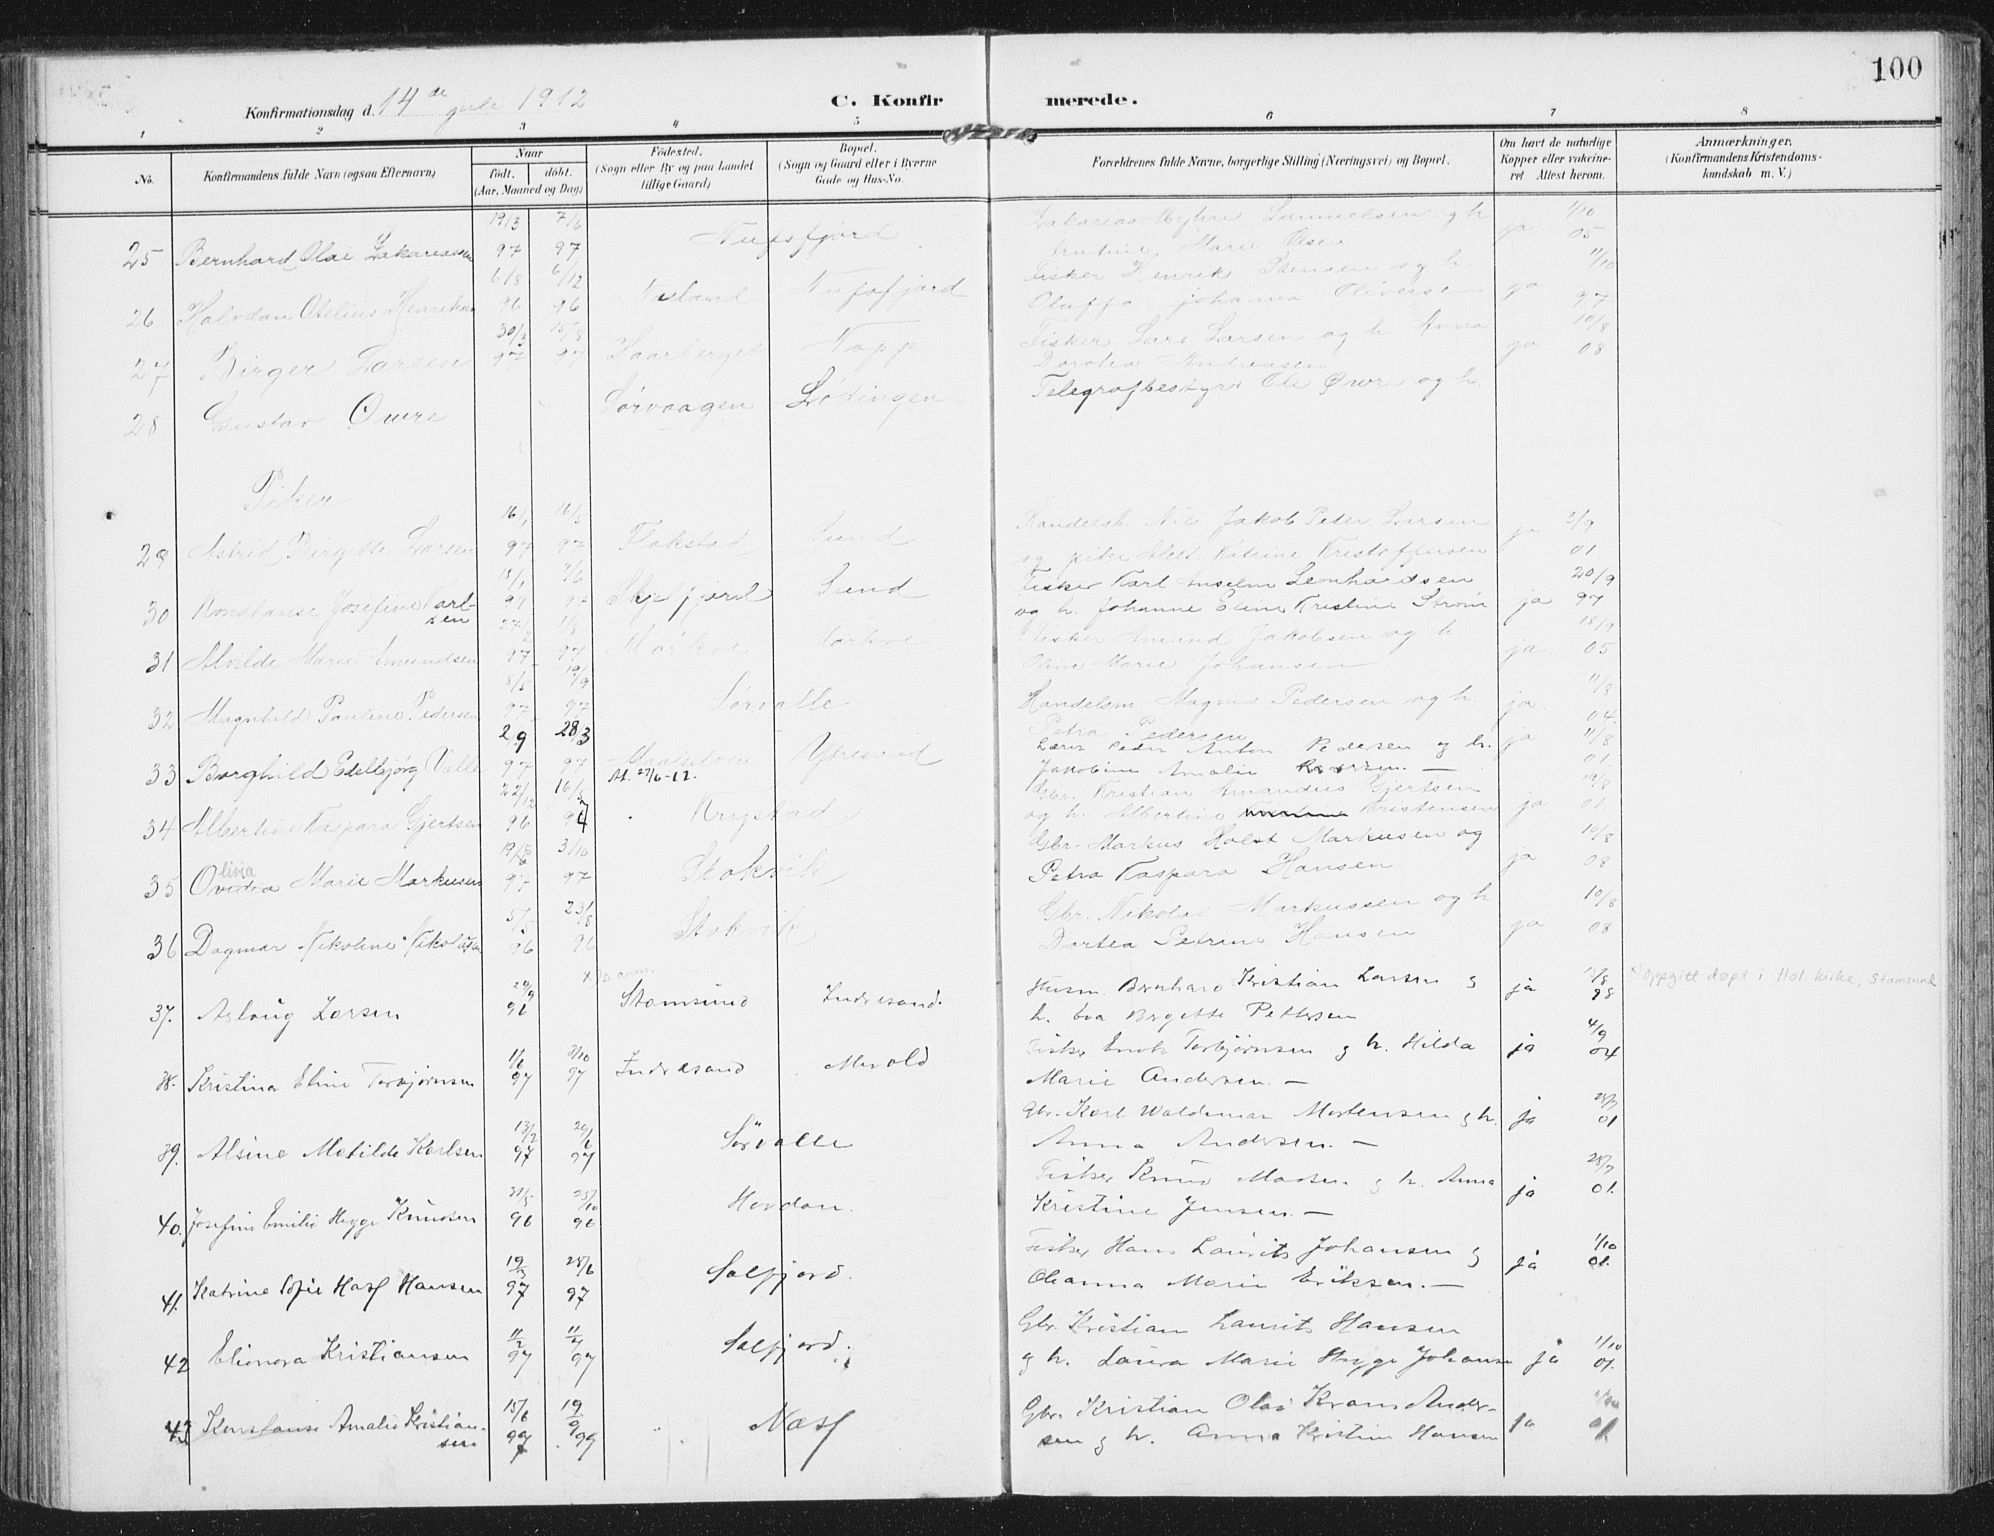 100
Konfirmationsdag d. 14de juli 1912
C. Konfirmerede.
1 2 3 4 5 6 7 8
No.
Konfirmandens fulde Navn (ogsaa Efternavn)
Naar
født. døbt.
(Aar, Maaned og Dag)
Fødested.
(Sogn eller By og paa Landet
tillige Gaard)
Bopæl.
(Sogn og Gaard eller i Byerne
Gade og Hus-No.
Forældrenes fulde Navne, borgerlige Stilling (Næringsvei) og Bopæl.
Om havt de naturlige
Kopper eller vakcine-
ret Attest herom.
Anmærkninger.
(Konfirmandens Kristendoms-
kundskab m. V.)
25 Bernhard Olai Zakariassen 19/3 97 7/6 97 Nufsfjord Zakarias Myhre Samuelsen og h. Marie Olsen ja 1/10 05
26 Halvdan Otelius Henriksen 6/8 96 6/12 96 Nusfjord Fisker Henrik Stensen og h. Oluffa Johanna Oliversen ja 11/10 97
27 Birger Larsen 30/3 97 15/8 97 Napp Fisker Lars Larsen og h. Anna Dorotea Andreasen ja 10/8 08
28 Gustav Øwre Sørvaagen Lødingen Telegrafbestyrer Ole Øwre og h.
Piker
29 Astrid Birgitte Larsen 16/1 97 16/5 97 Flakstad Sund Handelsb. Nil Jakob Peter Larsen og pike Katrine Kristoffersen ja 2/9 01.
30 Konstanse Josefine Karlsen 18/1 97 7/6 97 Skjelfjord Sund Fisker Karl Anselm Leonhardsen og h. Johanne Eline Kristine Strøm ja 20/9 97
31 Alvilde Marie Amundsen 27/2 97 1/8 97 Mørkve Mørkve Fisker Amund Jakobsen og h. Oline Marie Johansen ja. 18/9 05
32 Magnhild Pauline Pedersen 8/5 97 19/9 97 Sørvalle Handelsm. Magnus Pedersen og h. Petra Pedersen ja. 11/8 04.
33 Borghild Edelbjørg Valle 2/9 97 28/3 97 At. 27/6-12. Ytresand Lærer Peder Anton Pedersen og h. Jakobine Amalie — ja 11/8 01.
34 Albertine Kaspara Gjertsen 22/12 96 16/5 97 Krystad Gbr. Kristian Amandus Gjertsen og h. Albertine Kristensen ja 19/8 01.
35 Olivia Marie Markusen 19/6 97 3/10 97 Stokvik Gbr. Markus Holst Markusen og Petra Kaspara Hansen ja 10/8 08
36 Dagmar Nikoline Nikolaisen 5/5 96 23/8 96 Stokvik Gbr. Nikolai Markussen og h Dortea Petrine Hansen ja 10/8 08
37. Aslaug Larsen 29/9 96 Stamsund Indresand. Husm. Bernhard Kristian Larsen g h. Eva Birgitte Pettersen ja 15/8 98 x) oppgitt døpt i Hol kirke, Stamsund
38. Kristina Eline Torbjørnsen 1/6 97 3/10 97 Indresand Mevold Fisker Enok Torbjørnsen g h. Hilda Marie Andersen. — ja 4/9 04
39. Alsine Matilde Karlsen 13/2 97 20/6 97 Sørvalle Gbr. Karl Waldemar Mortensen g h. Anna Andersen. — ja 25/7 01
40. Josefine Emilie Hegge Knudsen 31/5 96 25/10 96 Hovdan. Fisker Knud Madsen g h. Anna Kristine Jensen. — ja 25/7 01.
41. Katrine Sofie Hass Hansen 19/3 97 25/6 97 Solfjord. Fisker Hans Laurits Johansen g Olianna Marie Eriksen. — ja 1/10 01.
42 Elionora Kristiansen 11/2 97 11/4 97 Solfjord. Gbr. Kristian Laurits Hansen g h. Laura Marie Hegge Johansen ja 1/10 01.
43 Konstanse Amalie Kristiansen 15/6 97 19/9 97 Næss Gbr. Kristian Olai Krans Andersen g h. Anna Kristine Hansen ja